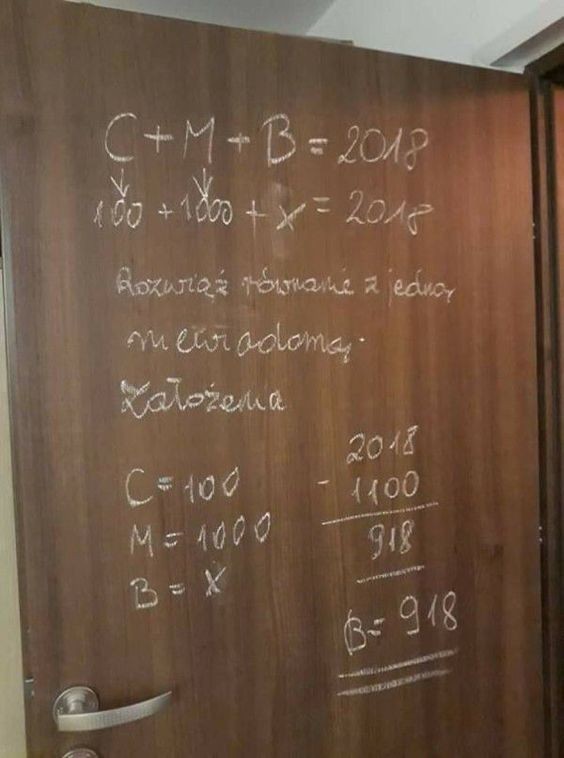 C+M+B=2018
100+1000+X=2018
Rozwiąż równanie z jedną
niewiadomą.
Założenia
C=100
M=1000
B=X
2018
-1100
918
B=918